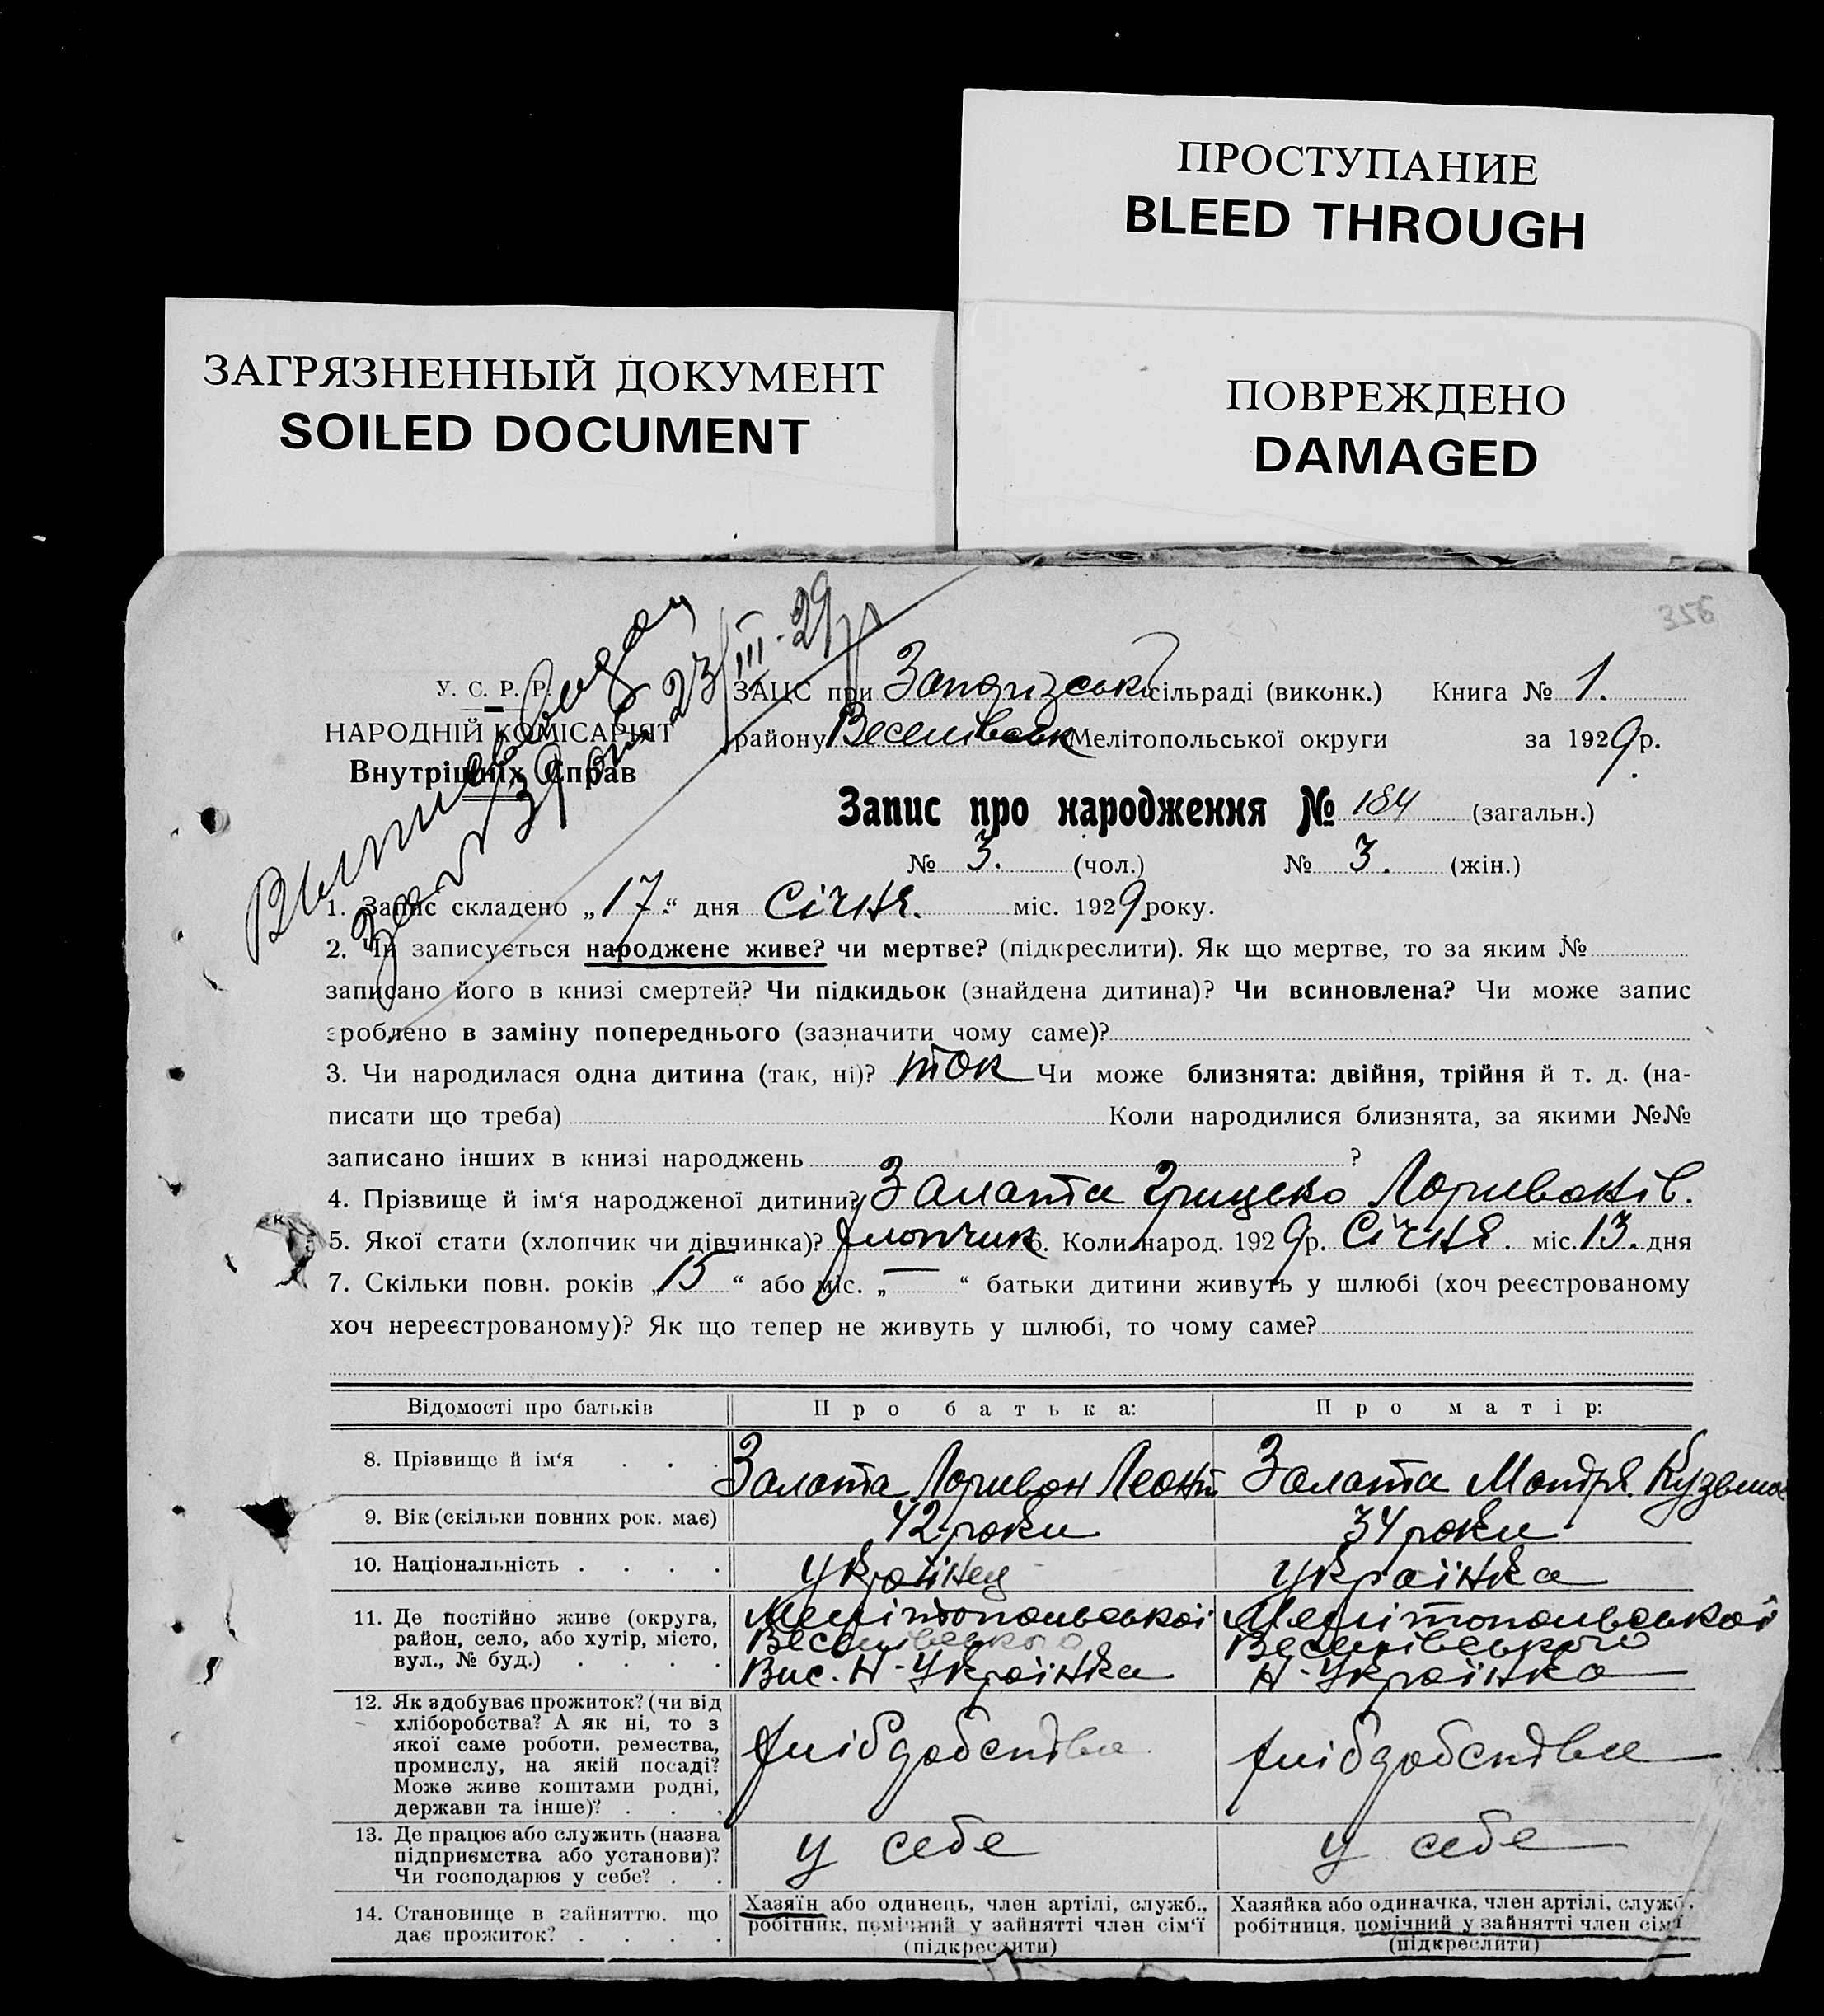 ПРОСТУПАНИЕ
BLEED THROUGH
ЗАГРЯЗНЕННЫЙ ДОКУМЕНТ
SOILED DOCUMENT
ПОВРЕЖДЕНО
DAMAGED
356
23/III-29
У. С. Р. Р.
НАРОДНІЙ КОМІСАРІЯТ
Внутрішніх Справ
ЗАЦС при сільраді (виконк.) Книга № 1.
району Веселівськ Мелітопольської округи за 1929 р.
Запис про народження № 184 (загальн.)
№ 3. (чол.) № 3. (жін.)
1. Запис складено „17“ дня Січня. міс. 1929 року.
2. Чи записується народжене живе? чи мертве? (підкреслити). Як що мертве, то за яким №
записано його в книзі смертей? Чи підкидьок (знайдена дитина)? Чи всиновлена? Чи може запис
зроблено в заміну попереднього (зазначити чому саме)?
3. Чи народилася одна дитина (так, ні)? так Чи може близнята: двійня, трійня й т. д. (на-
писати що треба) Коли народилися близнята, за якими №№
записано інших в книзі народжень ?
4. Прізвище й ім‘я народженої дитини? Залата Грицько Ларивонів.
5. Якої стати (хлопчик чи дівчинка)? Хлопчик 6. Коли народ. 1929 р. Січня. міс. 13. дня
7. Скільки повн. років „15“ або міс. „—“ батьки дитини живуть у шлюбі (хоч реєстрованому
хоч нереєстрованому)? Як що тепер не живуть у шлюбі, то чому саме?
Відомості про батьків Про батька: Про матір:
8. Прізвище й ім‘я . . . Залата Ларивон Леонт. Залата Мотря Кузьмов
9. Вік (скільки повних рок. має) 42 роки 34 роки
10. Національність . . . . українец українка
11. Де постійно живе (округа, район, село, або хутір, місто, вул., № буд.) . . . .
Мелітопольської Веселівського Вис. Н-Українка
Мелітопольської Веселівського Н-Українка
12. Як здобуває прожиток? (чи від
хліборобства? А як ні, то з
якої саме роботи, ремества,
промислу, на якій посаді?
Може живе коштами родні,
держави та інше)? . . .
13. Де працює або служить (назва
підприємства або установи)?
Чи господарює у себе? . .
у себе у себе
14. Становище в зайняттю, що
дає прожиток? . . . .
Хазяїн або одинець, член артілі, служб.,
робітник, помічний у зайнятті член сім‘ї
(підкреслити)
Хазяйка або одиначка, член артілі, служб.,
робітниця, помічний у зайнятті член сім‘ї
(підкреслити)